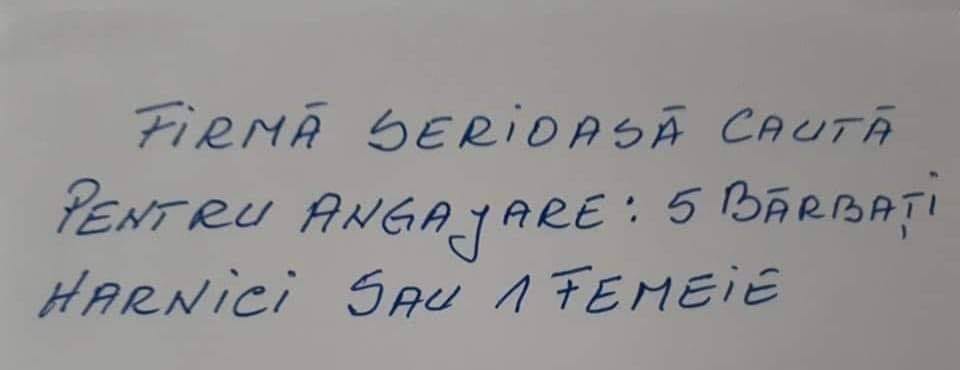 FIRMĂ SERIOASĂ CAUTĂ
PENTRU ANGAJARE: 5 BĂRBAȚI
HARNICI SAU 1 FEMEIE